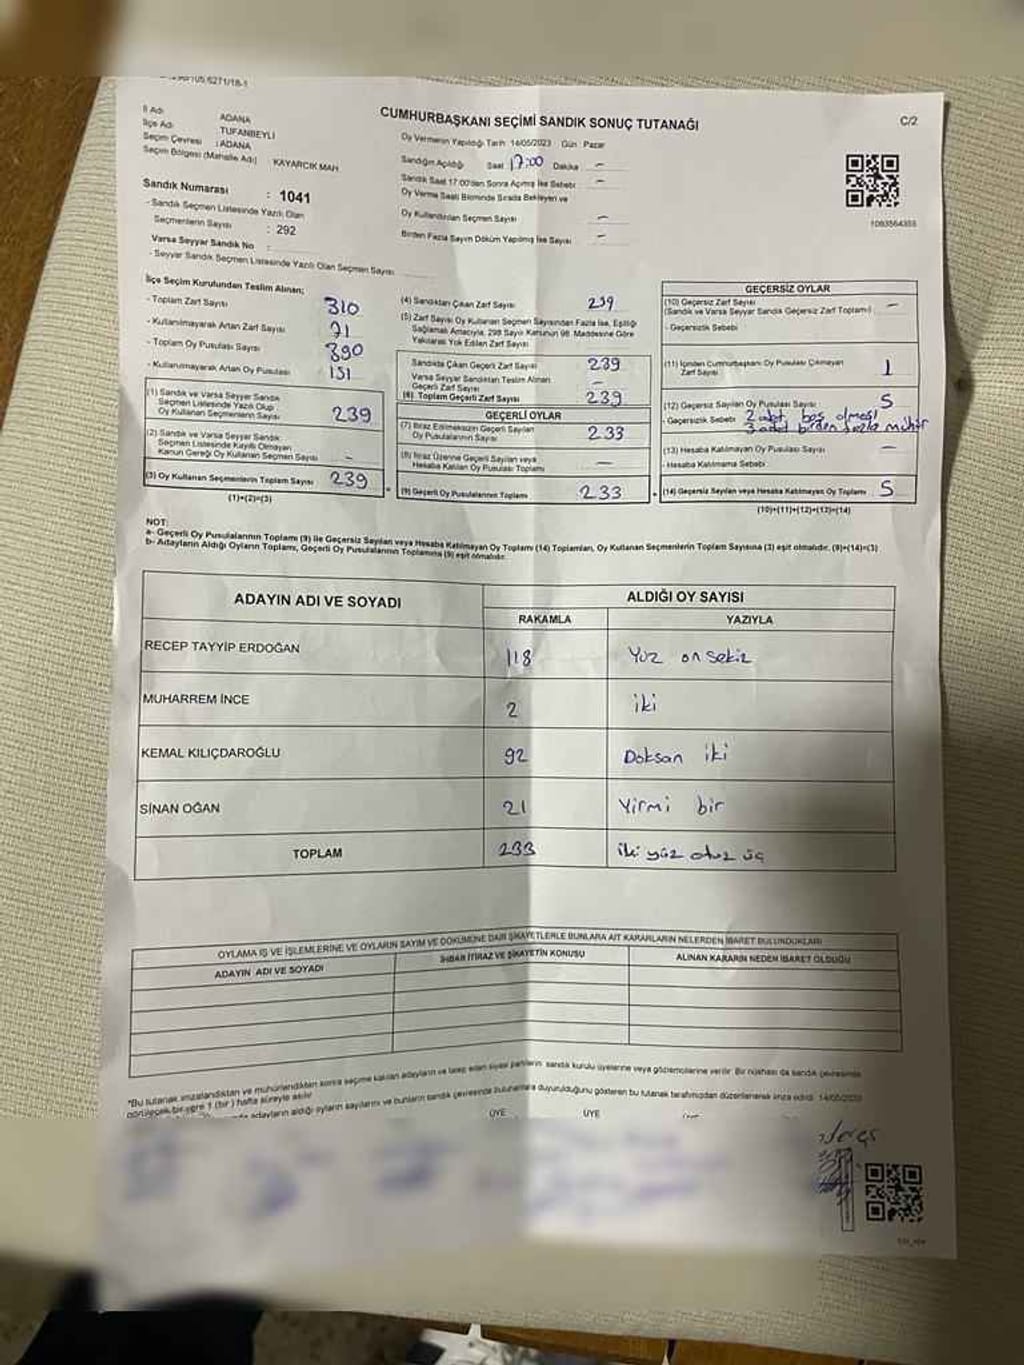 İl Adı ADANA
İlçe Adı TUFANBEYLİ
Seçim Çevresi : ADANA
Seçim Bölgesi (Mahalle Adı) KAYARCIK MAH
Sandık Numarası : 1041
- Sandık Seçmen Listesinde Yazılı Olan
Seçmenlerin Sayısı : 292
Varsa Seyyar Sandık No :
- Seyyar Sandık Seçmen Listesinde Yazılı Olan Seçmen Sayısı
CUMHURBAŞKANI SEÇİMİ SANDIK SONUÇ TUTANAĞI
C/2
Oy Vermenin Yapıldığı Tarih 14/05/2023 Gün Pazar
Sandığın Açıldığı Saat 17:00 Dakika -
Sandık Saat 17:00'den Sonra Açılmış İse Sebebi -
Oy Verme Saati Bitiminde Sırada Bekleyen ve
Oy Kullandırılan Seçmen Sayısı -
Birden Fazla Sayım Döküm Yapılmış İse Sayısı -
1093564355
İlçe Seçim Kurulundan Teslim Alınan;
- Toplam Zarf Sayısı 310
- Kullanılmayarak Artan Zarf Sayısı 71
- Toplam Oy Pusulası Sayısı 390
- Kullanılmayarak Artan Oy Pusulası 151
(1) Sandık ve Varsa Seyyar Sandık
Seçmen Listesinde Yazılı Olup
Oy Kullanan Seçmenlerin Sayısı 239
(2) Sandık ve Varsa Seyyar Sandık
Seçmen Listesinde Kayıtlı Olmayan
Kanun Gereği Oy Kullanan Seçmen Sayısı -
(3) Oy Kullanan Seçmenlerin Toplam Sayısı 239
(1)+(2)=(3)
(4) Sandıktan Çıkan Zarf Sayısı 239
(5) Zarf Sayısı Oy Kullanan Seçmen Sayısından Fazla İse, Eşitliği
Sağlamak Amacıyla, 298 Sayılı Kanunun 98. Maddesine Göre
Yakılarak Yok Edilen Zarf Sayısı
Sandıkta Çıkan Geçerli Zarf Sayısı 239
Varsa Seyyar Sandıktan Teslim Alınan
Geçerli Zarf Sayısı -
(6) Toplam Geçerli Zarf Sayısı 239
GEÇERLİ OYLAR
(7) İtiraz Edilmeksizin Geçerli Sayılan
Oy Pusulalarının Sayısı 233
(8) İtiraz Üzerine Geçerli Sayılan veya
Hesaba Katılan Oy Pusulası Toplamı -
(9) Geçerli Oy Pusulalarının Toplamı 233
GEÇERSİZ OYLAR
(10) Geçersiz Zarf Sayısı -
(Sandık ve Varsa Seyyar Sandık Geçersiz Zarf Toplamı)
- Geçersizlik Sebebi
(11) İçinden Cumhurbaşkanı Oy Pusulası Çıkmayan
Zarf Sayısı 1
(12) Geçersiz Sayılan Oy Pusulası Sayısı 5
- Geçersizlik Sebebi 2 adet boş olması
3 adet birden fazla mühür
(13) Hesaba Katılmayan Oy Pusulası Sayısı -
- Hesaba Katılmama Sebebi
(14) Geçersiz Sayılan veya Hesaba Katılmayan Oy Toplamı 5
(10)+(11)+(12)+(13)=(14)
NOT:
a- Geçerli Oy Pusulalarının Toplamı (9) ile Geçersiz Sayılan veya Hesaba Katılmayan Oy Toplamı (14) Toplamları, Oy Kullanan Seçmenlerin Toplam Sayısına (3) eşit olmalıdır. (9)+(14)=(3)
b- Adayların Aldığı Oyların Toplamı, Geçerli Oy Pusulalarının Toplamına (9) eşit olmalıdır.
ADAYIN ADI VE SOYADI ALDIĞI OY SAYISI
RAKAMLA YAZIYLA
RECEP TAYYİP ERDOĞAN 118 Yüz on sekiz
MUHARREM İNCE 2 iki
KEMAL KILIÇDAROĞLU 92 Doksan iki
SİNAN OĞAN 21 Yirmi bir
TOPLAM 233 iki yüz otuz üç
OYLAMA İŞ VE İŞLEMLERİNE VE OYLARIN SAYIM VE DÖKÜMÜNE DAİR ŞİKAYETLERLE BUNLARA AİT KARARLARIN NELERDEN İBARET BULUNDUKLARI
ADAYIN ADI VE SOYADI İHBAR İTİRAZ VE ŞİKAYETİN KONUSU ALINAN KARARIN NEDEN İBARET OLDUĞU
*Bu tutanak imzalandıktan ve mühürlendikten sonra seçime katılan adayların ve talep eden siyasi partilerin sandık kurulu üyelerine veya gözlemcilerine verilir. Bir nüshası da sandık çevresinde
görülecek bir yere 1 (bir) hafta süreyle asılır.
adayların aldığı oyların sayılarını ve bunların sandık çevresinde bulunanlara duyurulduğunu gösteren bu tutanak tarafımızdan düzenlenerek imza edildi. 14/05/2023
ÜYE ÜYE